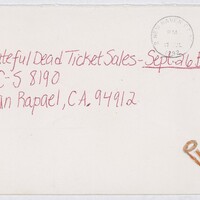 teful Dead Ticket Sales - Sept. 26
C-S 8190
an Rapael, CA. 94912